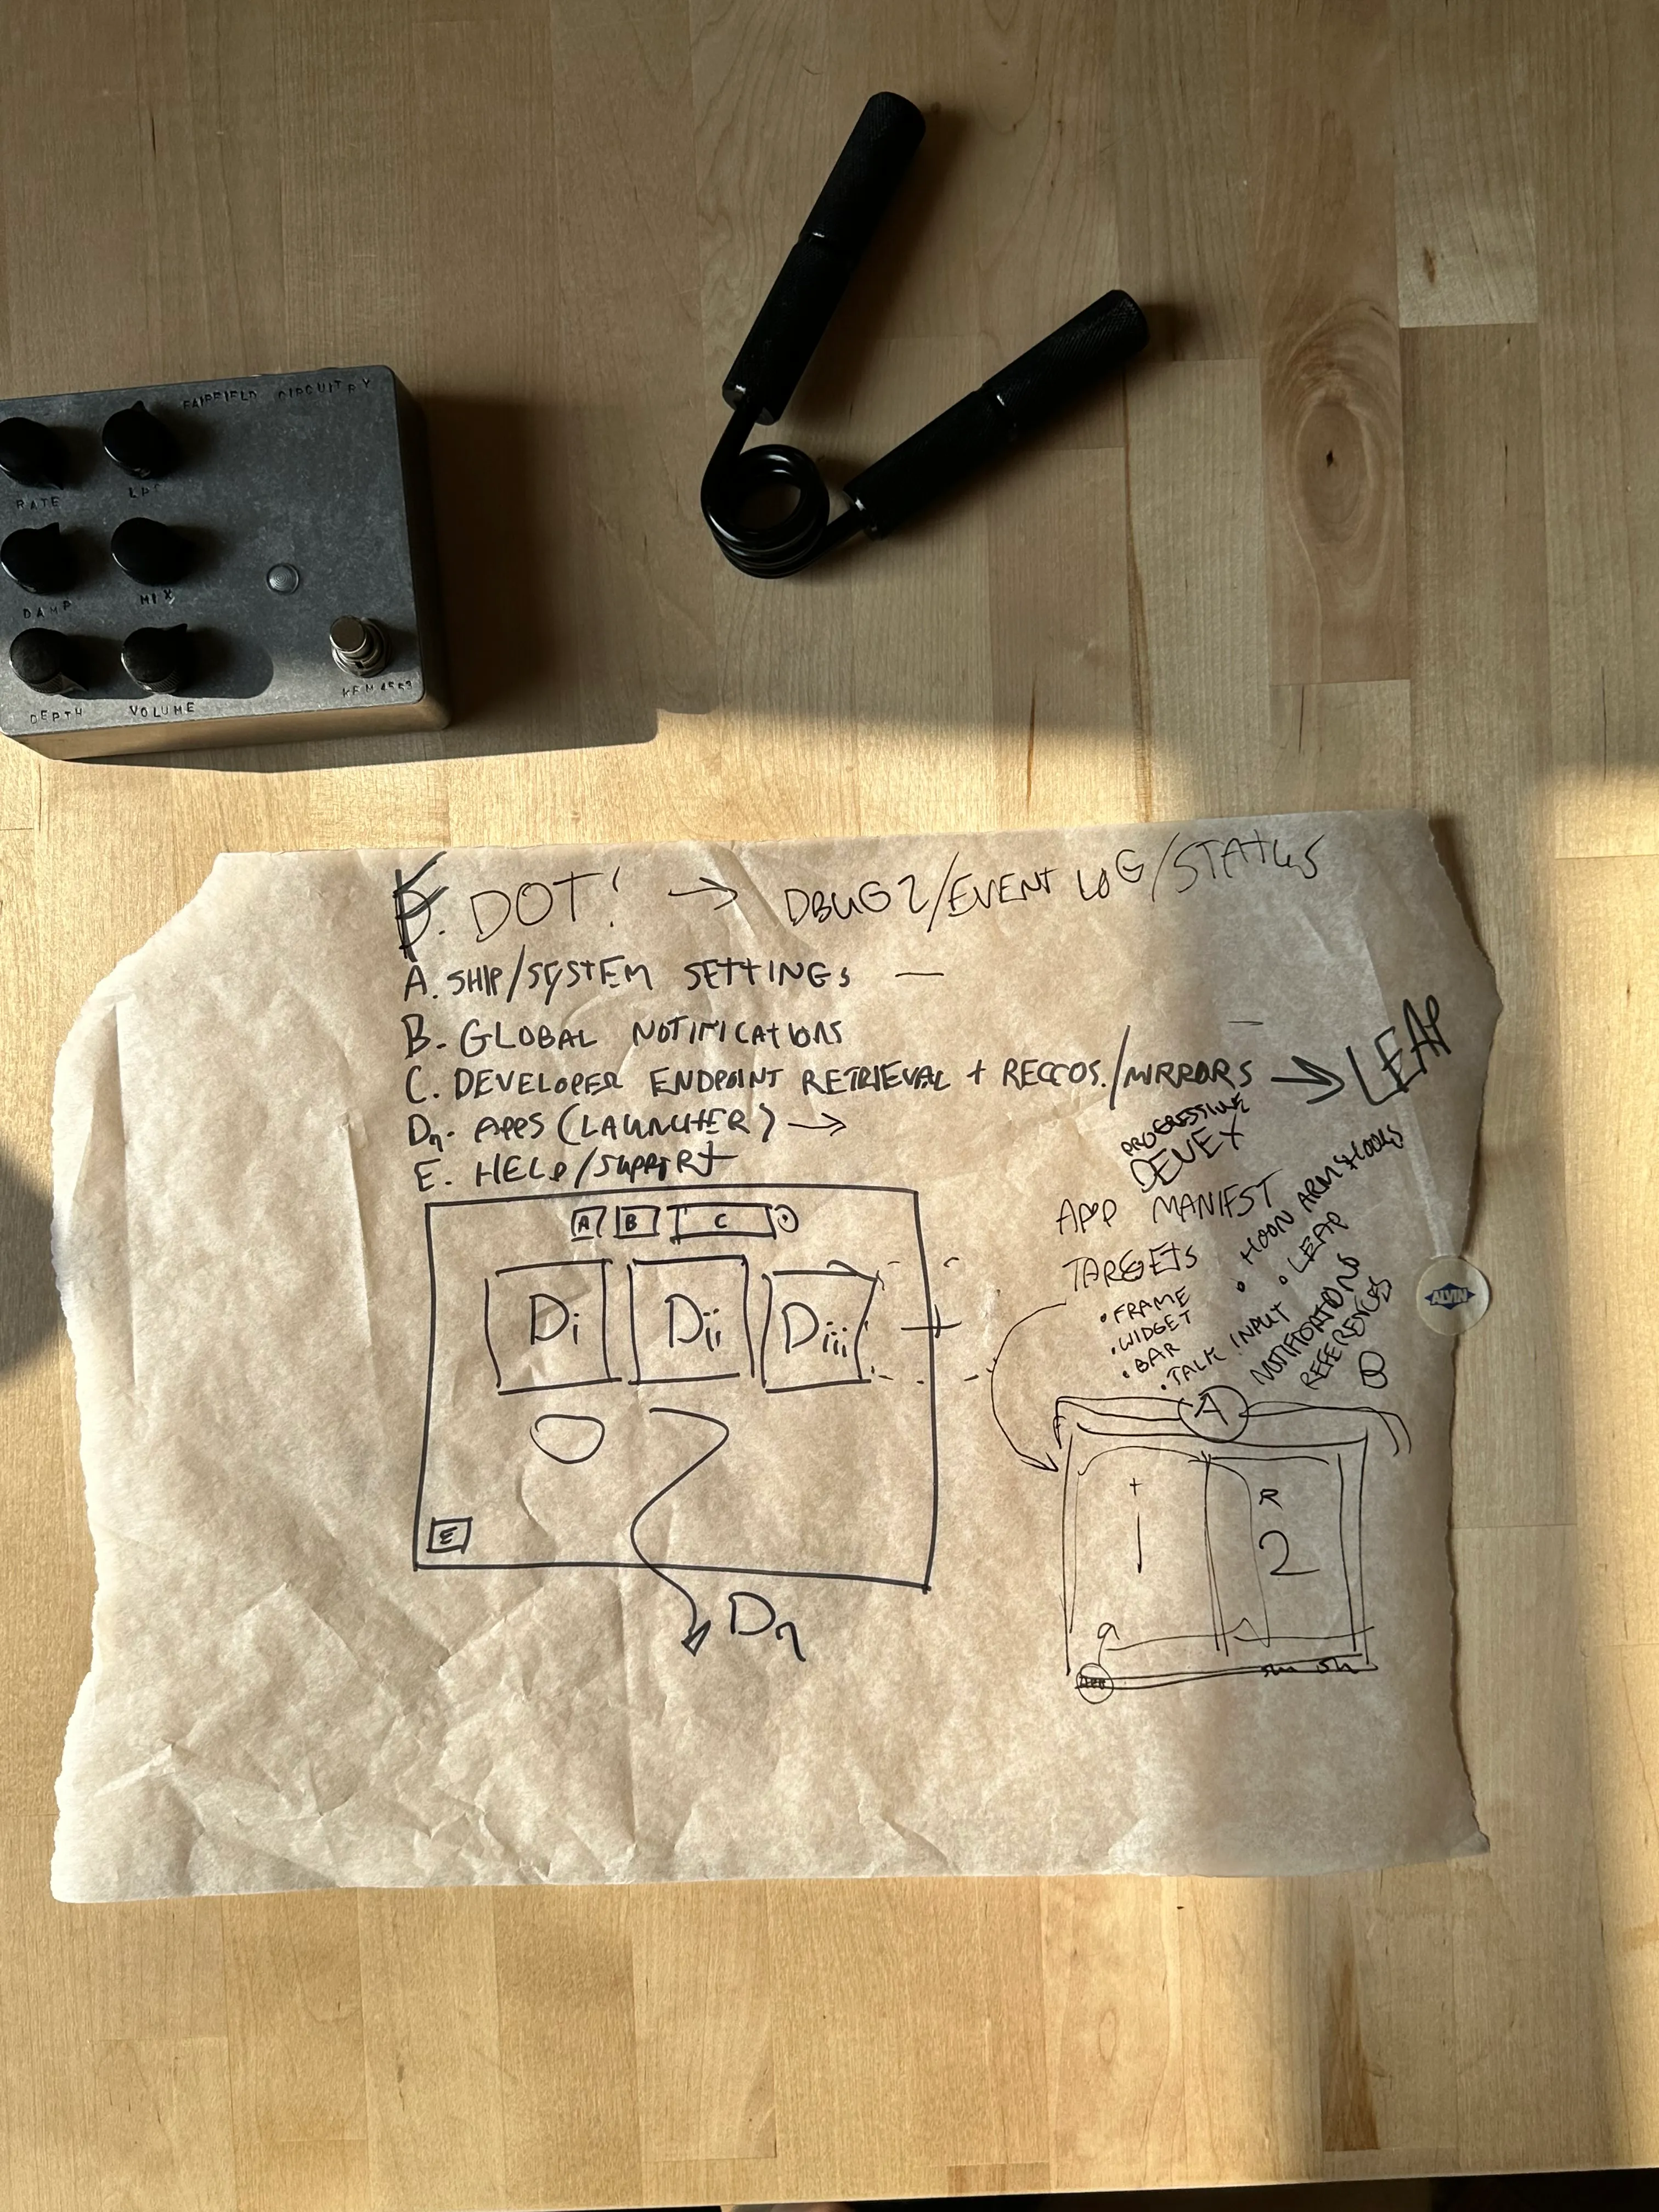 FAIRFIELD CIRCUITRY
RATE
LPG
DAMP
MIX
DEPTH
VOLUME
F. DOT! → DBUG2/EVENT LOG/STATUS
A. SHIP/SYSTEM SETTINGS —
B. GLOBAL NOTIFICATIONS
C. DEVELOPER ENDPOINT RETRIEVAL + RECCOS./MIRRORS → LEAP
Dn. APPS (LAUNCHER) →
E. HELP/SUPPORT
PROGRESSIVE
DEVEX
APP MANIFEST
TARGETS
• FRAME
• WIDGET
• BAR
• TALK INPUT
• HOON ARMS HOOKS
• LEAP
NOTIFICATIONS
REFERENCES
ALVIN
A
B
C
Di
Dii
Diii
+
E
Dn
A
1
R
2